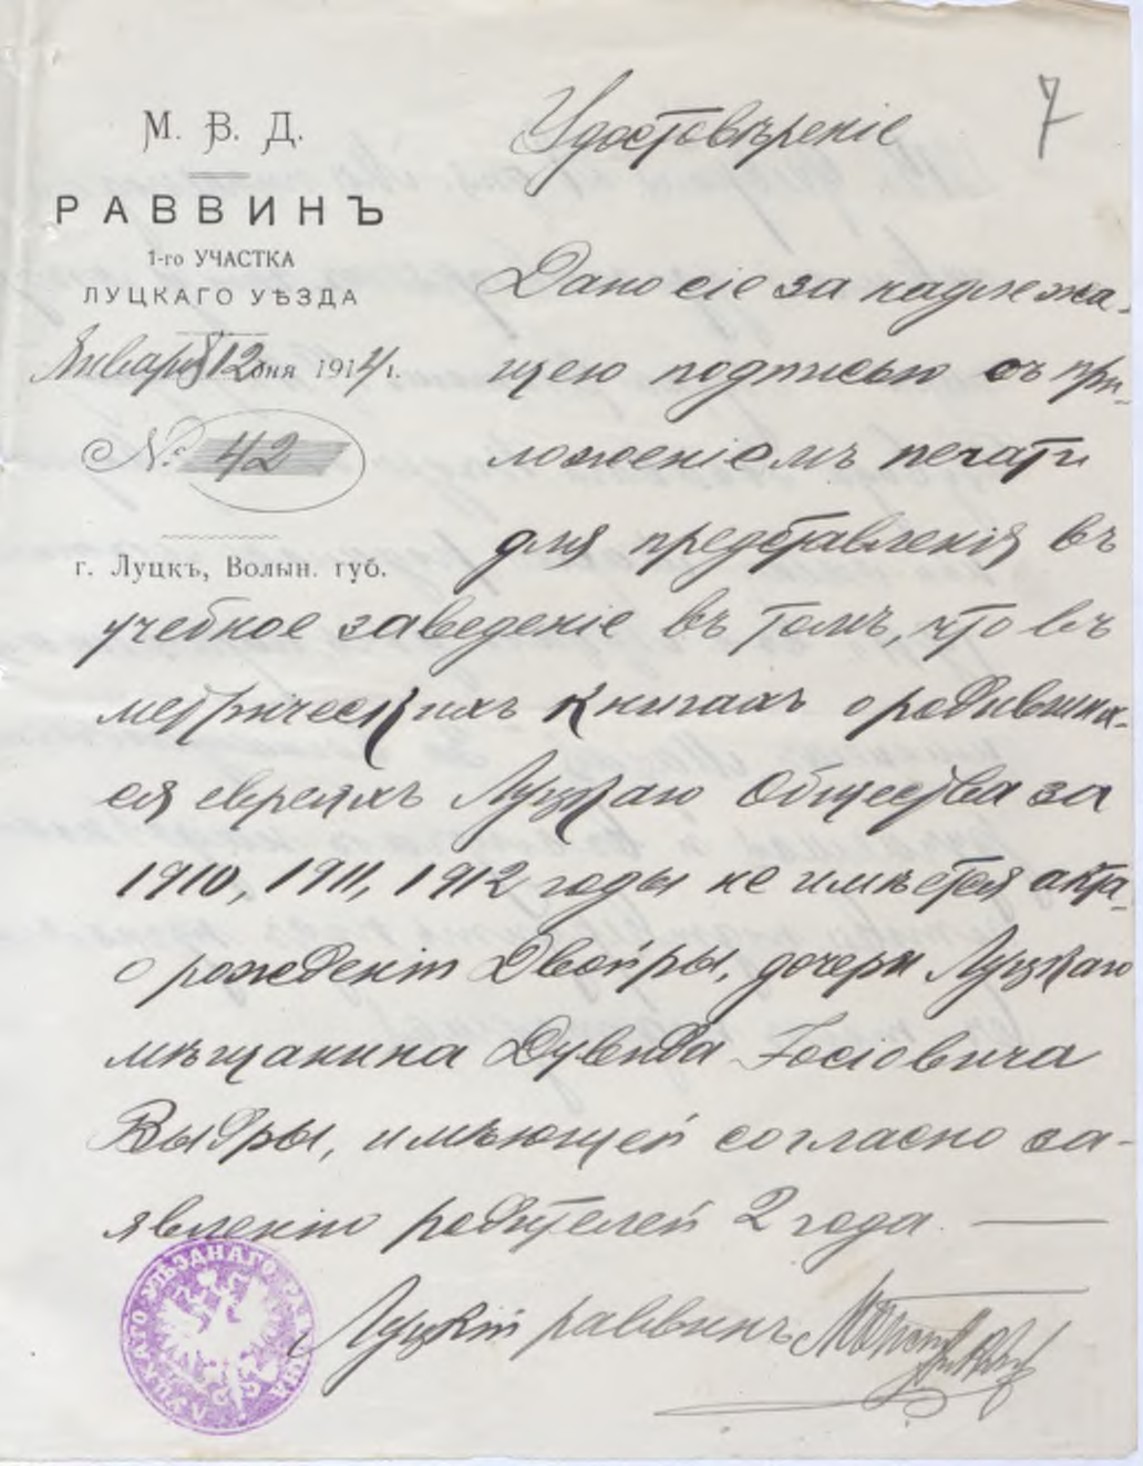 7
М. В. Д.
РАВВИНЪ
1-го УЧАСТКА
ЛУЦКАГО УѢЗДА
Января 12 дня 1914 г.
№ 42
г. Луцкъ, Волын. губ.
Удостовѣреніе
Дано сіе за надлежа-
щею подписью съ при-
ложеніемъ печати
для представленія въ
учебное заведеніе въ томъ, что въ
метрическихъ книгахъ о родивших-
ся евреяхъ Луцкаго Общества за
1910, 1911, 1912 годы не имѣется акта
о рожденіи Двойры, дочери Луцкаго
мѣщанина Дувида Іосіовича
Выдры, имѣющей согласно за-
явленію родителей 2 года.
Луцкій раввинъ
ЛУЦКАГО УѢЗДНАГО РАВВИНА